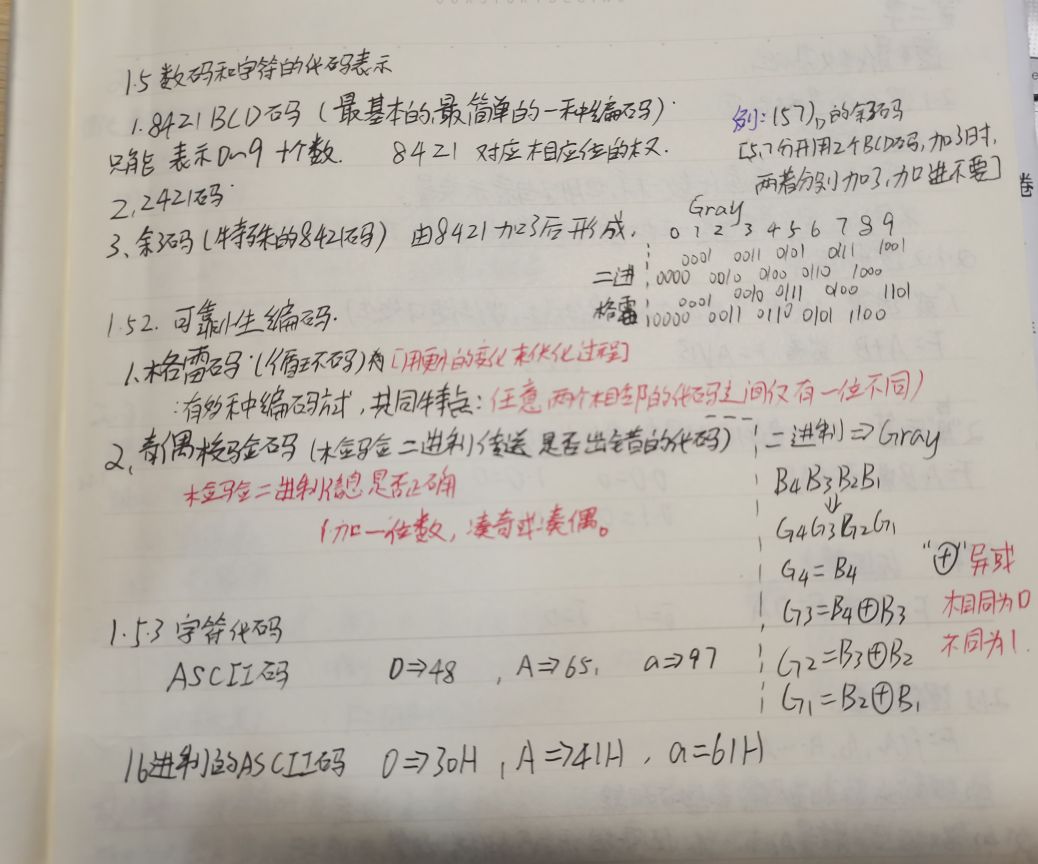 1.5 数码和字符的代码表示
1. 8421BCD码 (最基本的,最简单的一种编码).
只能表示0~9十个数. 8421 对应相应位的权.
2, 2421码.
3、余3码 (特殊的8421码) 由8421加3后形成.
例: (57)D的余3码
[5,7分开用2个BCD码,加3时,
两者分别加3,加口进不要]
Gray
0 1 2 3 4 5 6 7 8 9
0001 0011 0101 0111 1001
二进 0000 0010 0100 0110 1000
0001 0010 0111 0100 1101
格雷 0000 0011 0110 0101 1100
1.52. 可靠性编码.
1.格雷码 (循环码)
:有多种编码方式, 共同特点: 任意两个相邻的代码之间仅有一位不同)
2, 奇偶校验码 (检验二进制传送是否出错的代码)
检验二进制信息是否正确
加一位数, 凑奇或凑偶。
二进制⇒Gray
B4B3B2B1
⇓
G4G3G2G1
G4=B4
G3=B4⊕B3
G2=B3⊕B2
G1=B2⊕B1
"⊕"异或
相同为0
不同为1.
1.5.3 字符代码
ASCII码 0⇒48 , A⇒65, a⇒97
16进制的ASCII码 0⇒30H , A⇒41H , a=61H
卷